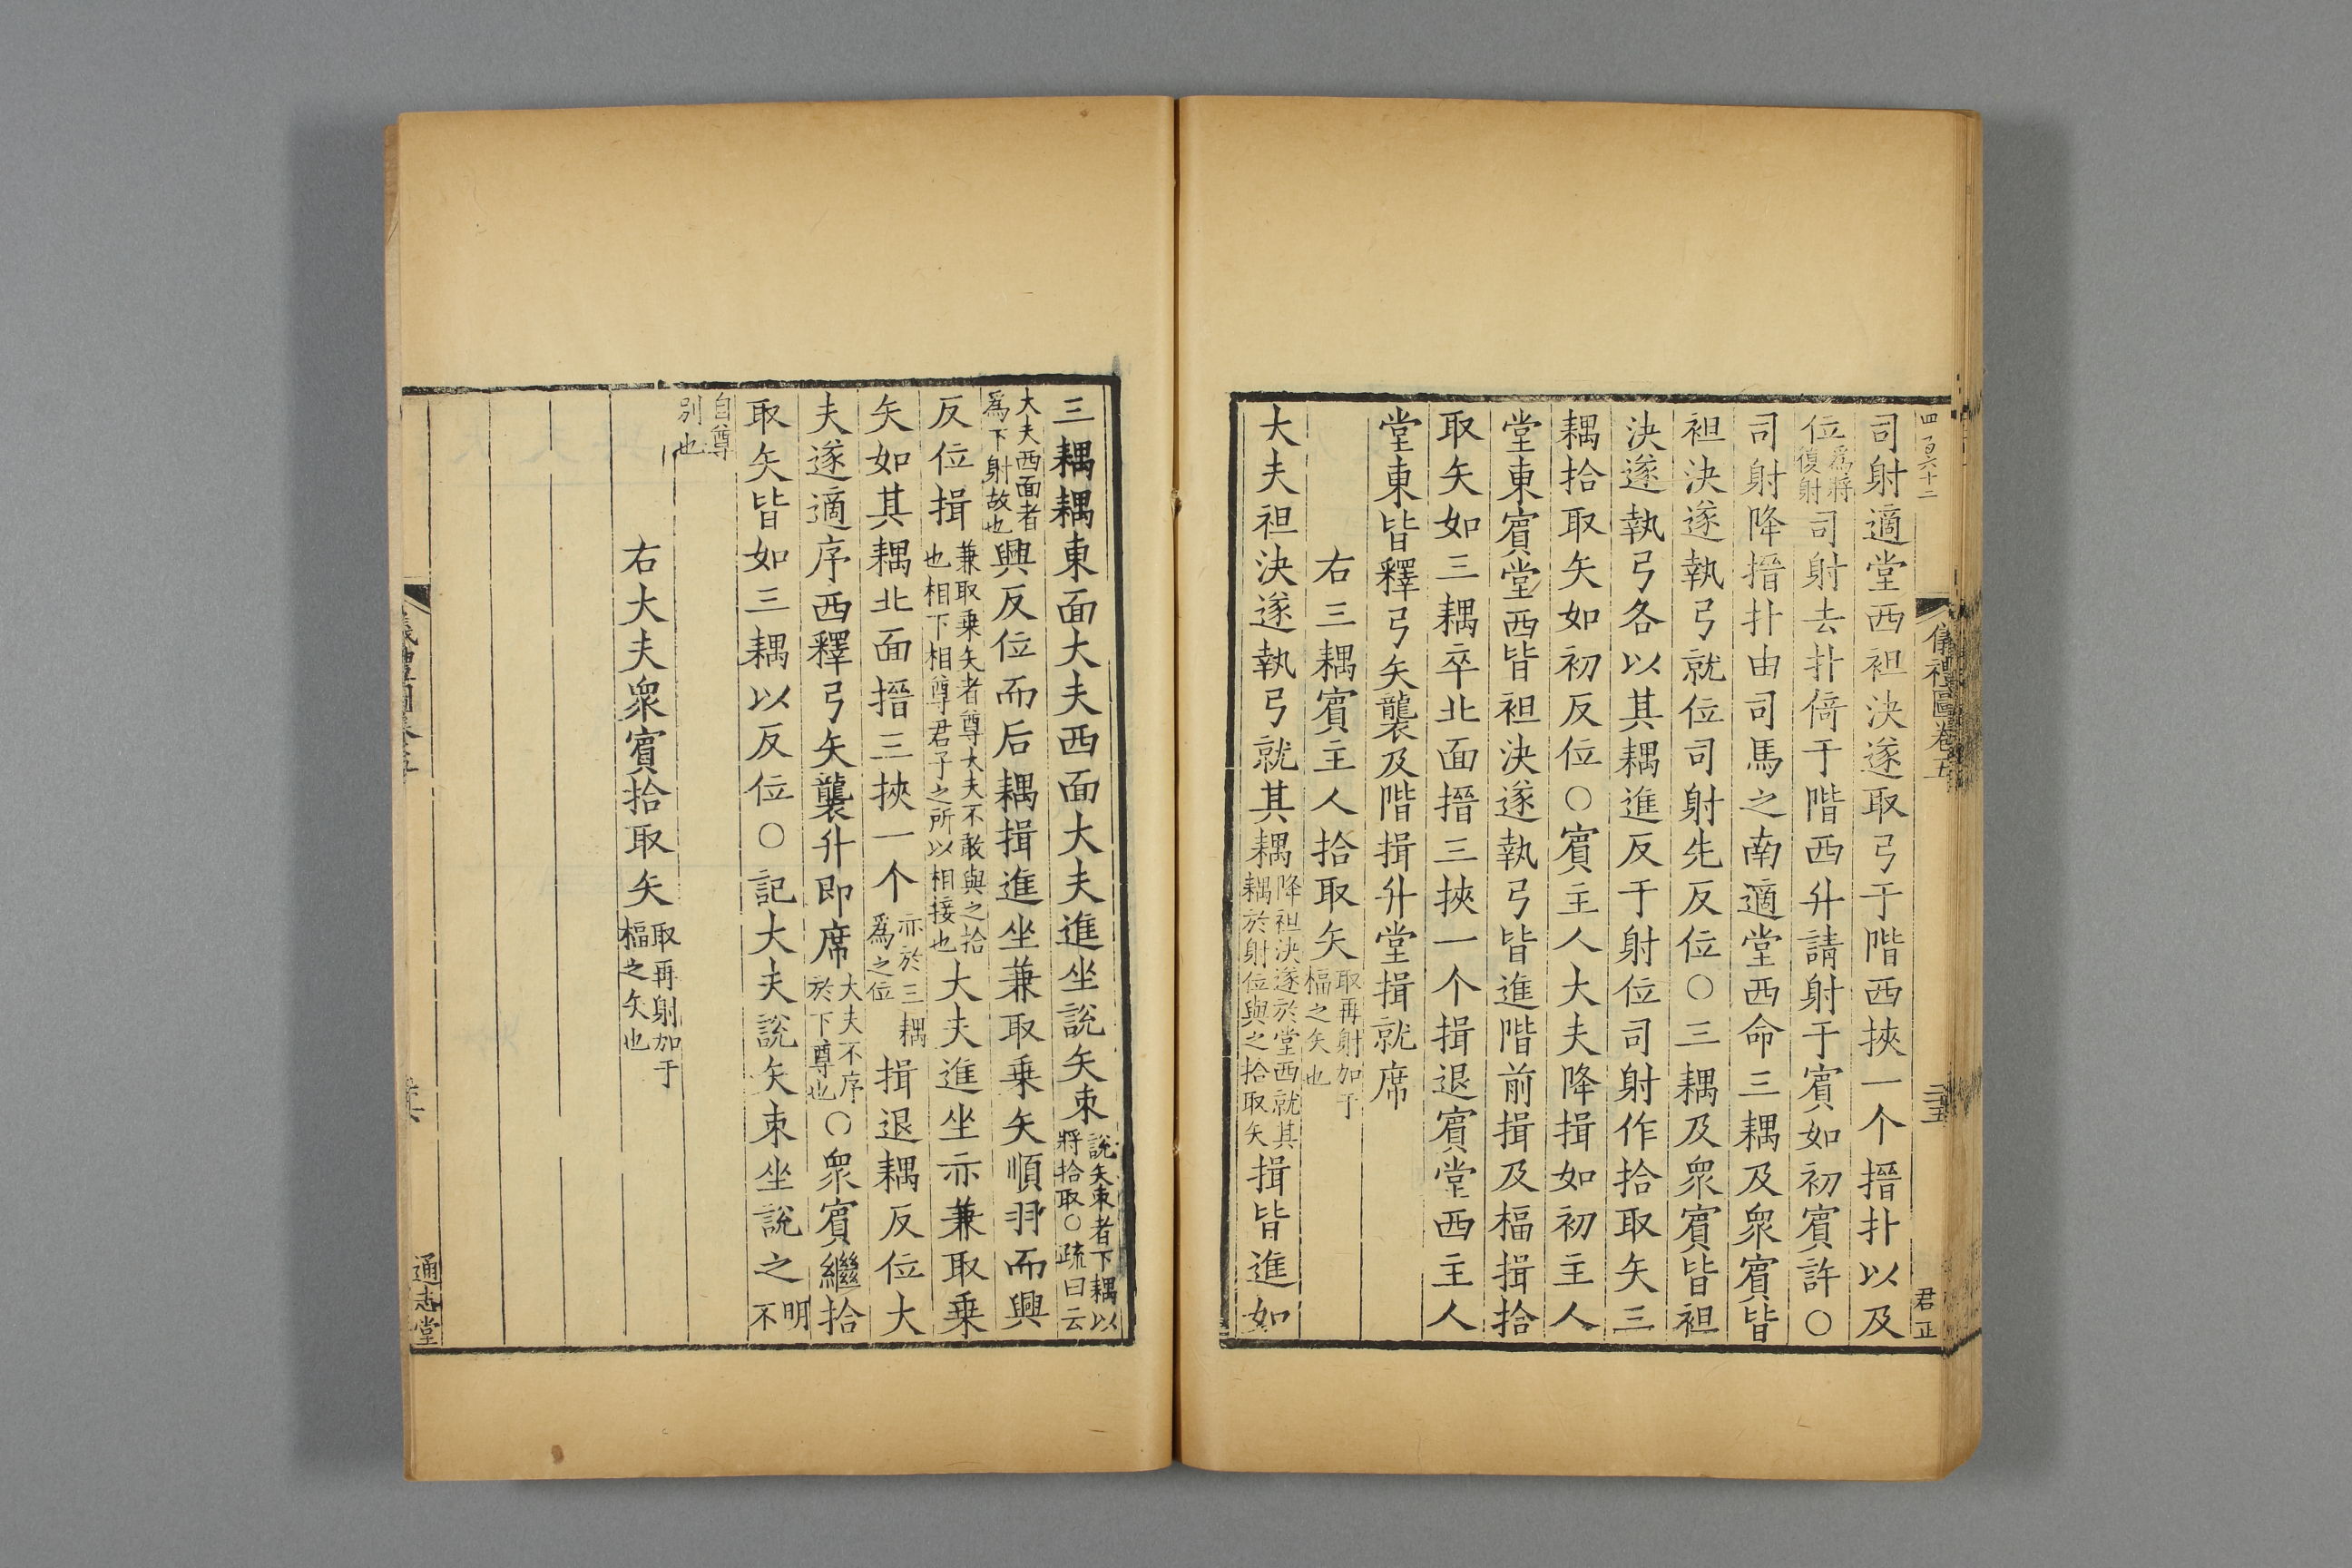 四百六十二
儀禮圖卷五
三五
君正
司射適堂西袒決遂取弓于階西挾一个搢扑以及
位爲將復射司射去扑倚于階西升請射于賓如初賓許〇
司射降搢扑由司馬之南適堂西命三耦及衆賓皆
袒決遂執弓就位司射先反位〇三耦及衆賓皆袒
決遂執弓各以其耦進反于射位司射作拾取矢三
耦拾取矢如初反位〇賓主人大夫降揖如初主人
堂東賓堂西皆袒決遂執弓皆進階前揖及楅揖拾
取矢如三耦卒北面搢三挾一个揖退賓堂西主人
堂東皆釋弓矢襲及階揖升堂揖就席
右三耦賓主人拾取矢取再射加于楅之矢也
大夫袒決遂執弓就其耦降袒決遂於堂西就其耦於射位與之拾取矢揖皆進如
三耦耦東面大夫西面大夫進坐說矢束說矢束者下耦以將拾取〇疏曰云
大夫西面者爲下射故也興反位而后耦揖進坐兼取乗矢順羽而興
反位揖兼取乗矢者尊大夫不敢與之拾也相下相尊君子之所以相接也大夫進坐亦兼取乗
矢如其耦北面搢三挾一个亦於三耦爲之位揖退耦反位大
夫遂適序西釋弓矢襲升即席大夫不序於下尊也〇衆賓繼拾
取矢皆如三耦以反位〇記大夫說矢束坐說之明不
自尊別也
右大夫衆賓拾取矢取再射加于楅之矢也
通志堂